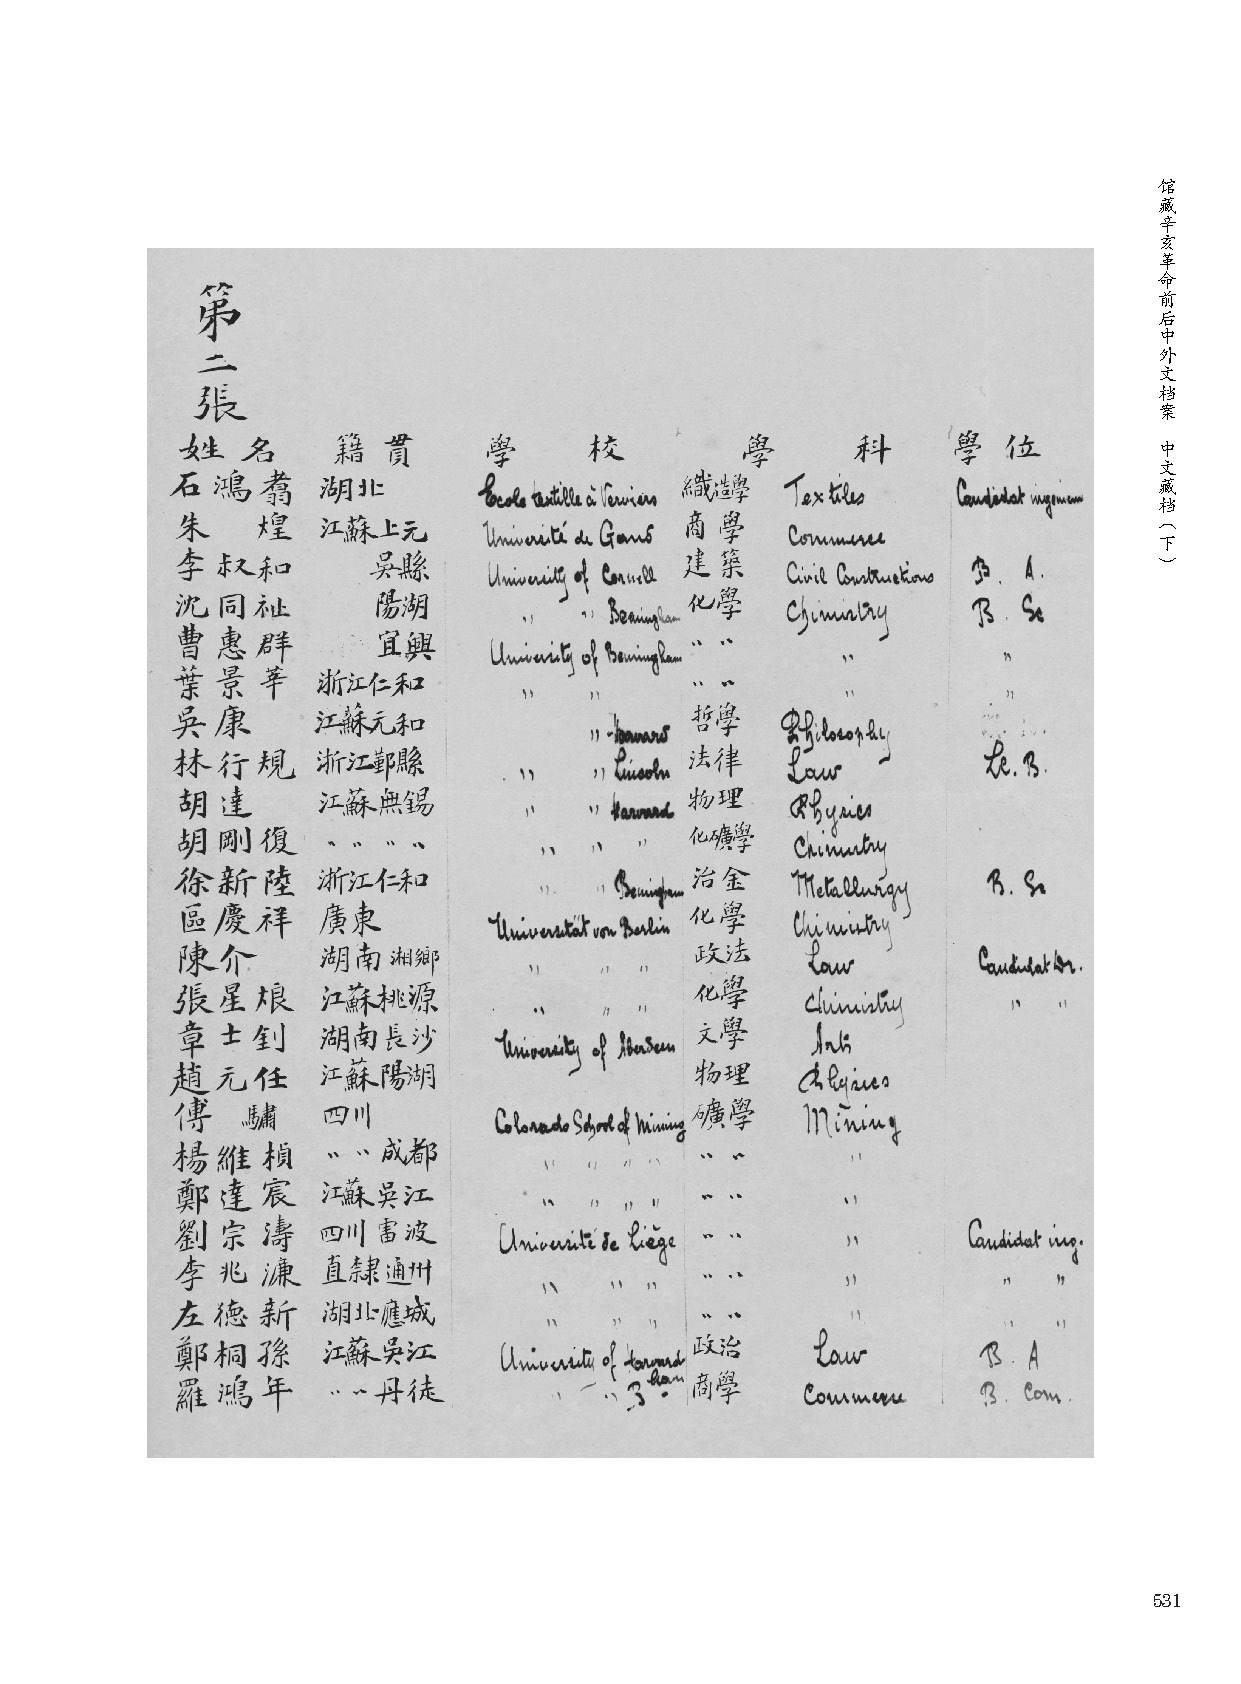 馆藏辛亥革命前后中外文档案 中文藏档（下）
第二張
姓名 籍貫 學校 學科 學位
石鴻翥 湖北 Ecole textille à Verviers 織造學 Textiles Candidat ingenieur
朱煌 江蘇上元 Université de Gand 商學 Commerce
李叔和 吳縣 University of Cornell 建築 Civil Constructions B. A.
沈同祉 陽湖 " " Bermingham 化學 Chimistry B. Sc
曹惠群 宜興 University of Bermingham " " " "
葉景莘 浙江仁和 " " " " " "
吳康 江蘇元和 " Harvard 哲學 Philosophy
林行規 浙江鄞縣 " " Lincoln 法律 Law LL. B.
胡達 江蘇無錫 " " Harvard 物理 Physics
胡剛復 " " " " " " " 化礦學 Chimistry
徐新陸 浙江仁和 " " Bermingham 冶金 Metallurgy B. Sc
區慶祥 廣東 Universität von Berlin 化學 Chimistry
陳介 湖南湘鄉 " " " 政法 Law Candidat Dr.
張星烺 江蘇桃源 " " " 化學 Chimistry " "
章士釗 湖南長沙 University of Aberdeen 文學 Arts
趙元任 江蘇陽湖 物理 Physics
傅驌 四川 Colorado School of Mining 礦學 Mining
楊維楨 " " 成都 " " " " " " "
鄭達宸 江蘇吳江 " " " " " " "
劉宗濤 四川雷波 Université de Liège " " " Candidat ing.
李兆濂 直隸通州 " " " " " " " "
左德新 湖北應城 " " " " " " " "
鄭桐孫 江蘇吳江 University of Harvard 政治 Law B. A
羅鴻年 " " 丹徒 " " B. ham 商學 Commerce B. Com.
531